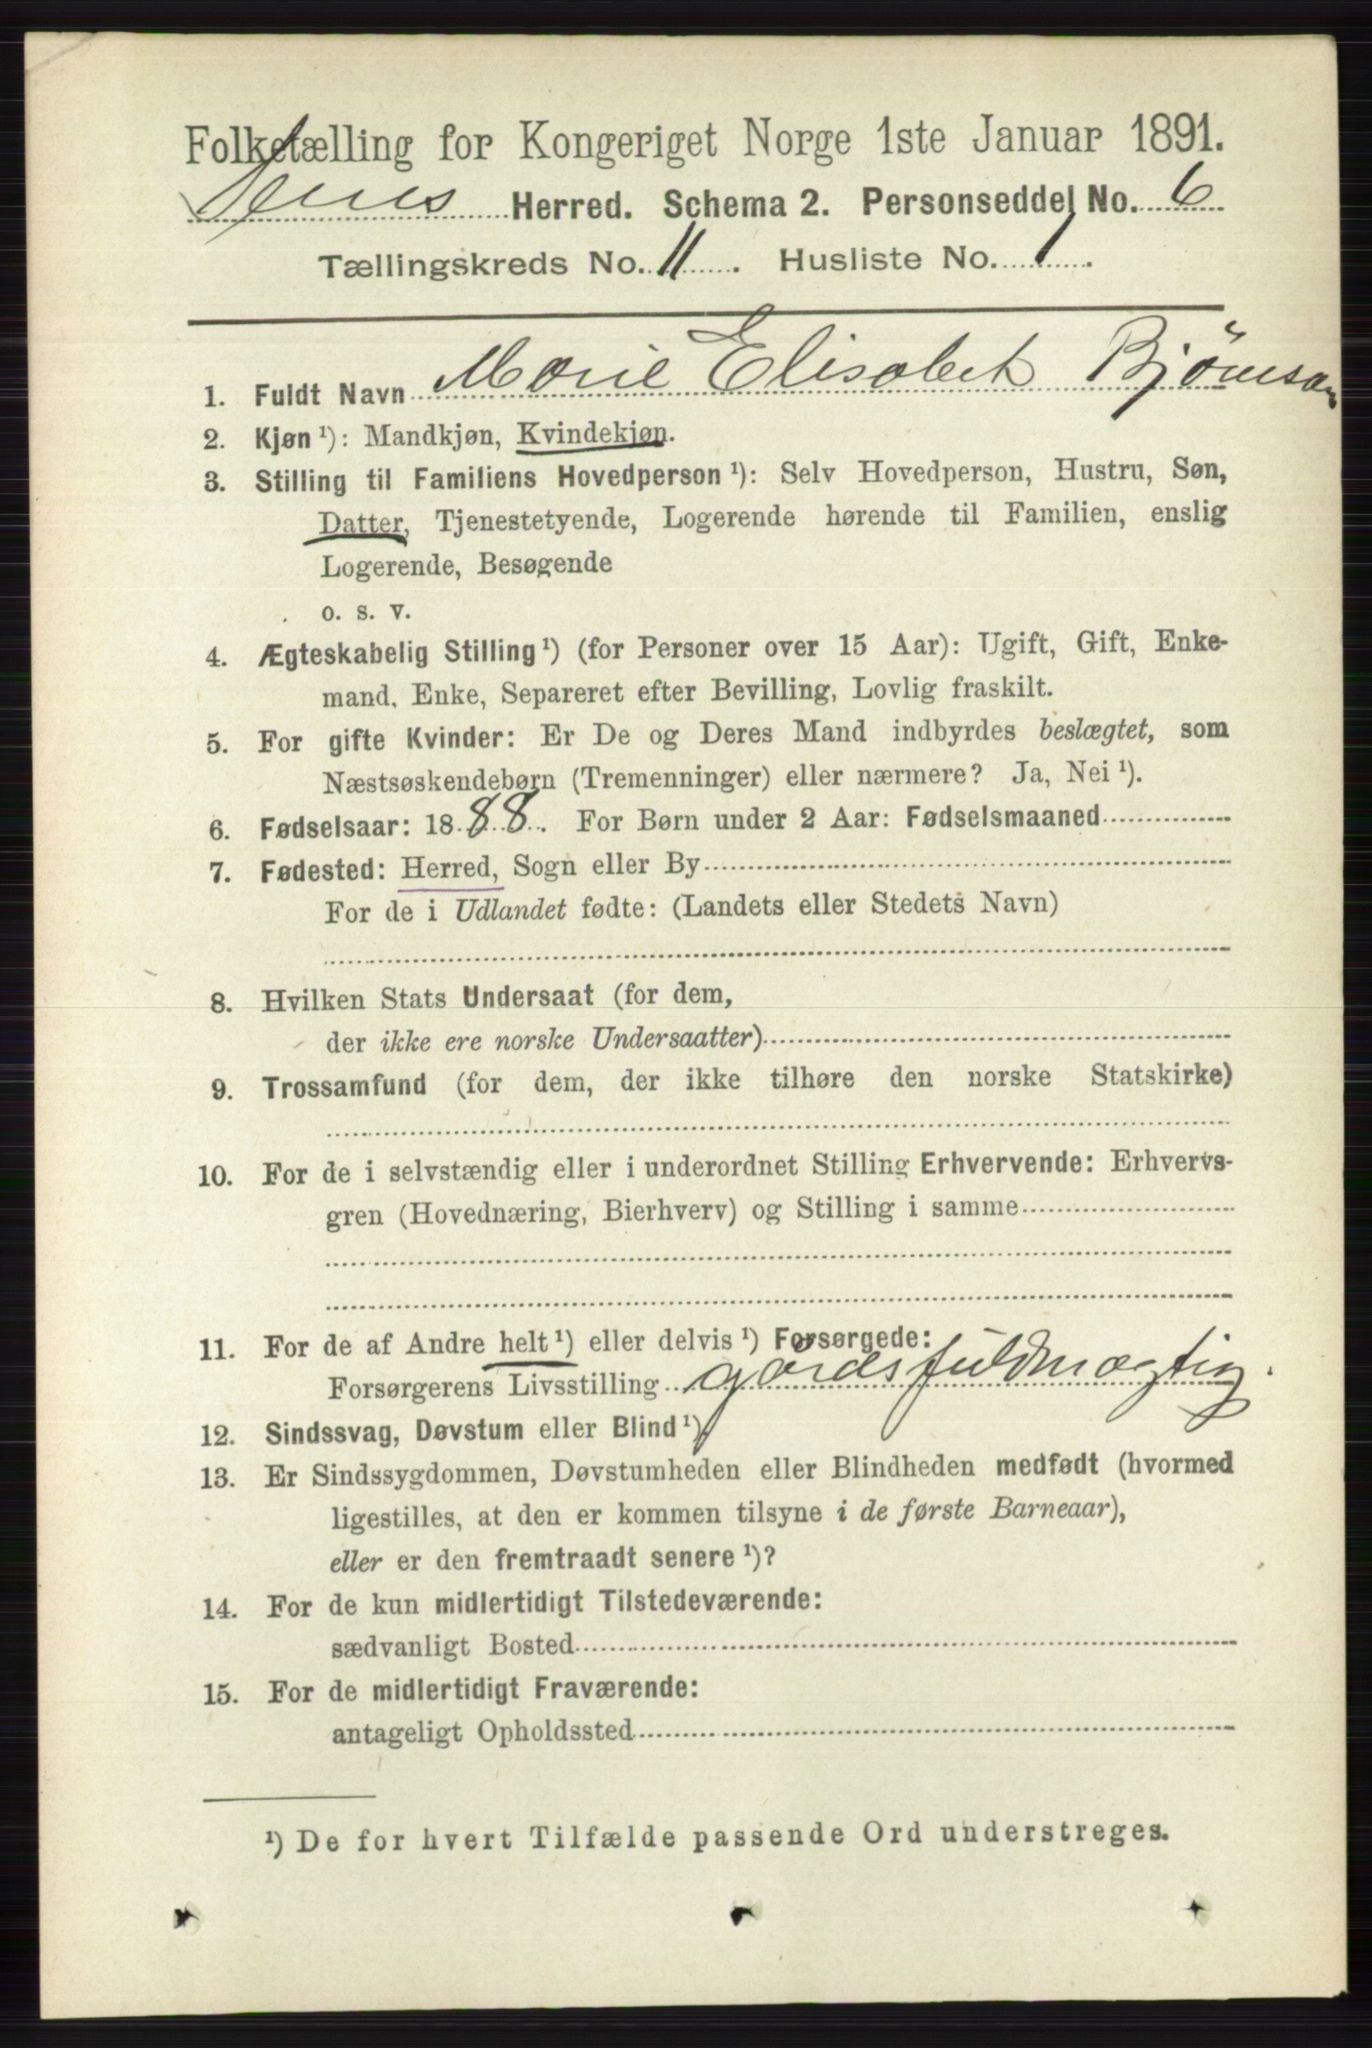 Folketælling for Kongeriget Norge 1ste Januar 1891.
Herred. Schema 2. Personseddel No. 6
Tællingskreds No. 11. Husliste No. 1.
1. Fuldt Navn Marie Elisabet Bjørnson
2. Kjøn ¹): Mandkjøn, Kvindekjøn.
3. Stilling til Familiens Hovedperson ¹): Selv Hovedperson, Hustru, Søn,
Datter, Tjenestetyende, Logerende hørende til Familien, enslig
Logerende, Besøgende
o. s. v.
4. Ægteskabelig Stilling ¹) (for Personer over 15 Aar): Ugift, Gift, Enke-
mand, Enke, Separeret efter Bevilling, Lovlig fraskilt.
5. For gifte Kvinder: Er De og Deres Mand indbyrdes beslægtet, som
Næstsøskendebørn (Tremenninger) eller nærmere? Ja, Nei ¹).
6. Fødselsaar: 1888. For Børn under 2 Aar: Fødselsmaaned
7. Fødested: Herred, Sogn eller By
For de i Udlandet fødte: (Landets eller Stedets Navn)
8. Hvilken Stats Undersaat (for dem,
der ikke ere norske Undersaatter)
9. Trossamfund (for dem, der ikke tilhøre den norske Statskirke)
10. For de i selvstændig eller i underordnet Stilling Erhvervende: Erhvervs-
gren (Hovednæring, Bierhverv) og Stilling i samme
11. For de af Andre helt ¹) eller delvis ¹) Forsørgede:
Forsørgerens Livsstilling gårdsfuldmægtig.
12. Sindssvag, Døvstum eller Blind ¹)
13. Er Sindssygdommen, Døvstumheden eller Blindheden medfødt (hvormed
ligestilles, at den er kommen tilsyne i de første Barneaar),
eller er den fremtraadt senere ¹)?
14. For de kun midlertidigt Tilstedeværende:
sædvanligt Bosted
15. For de midlertidigt Fraværende:
antageligt Opholdssted
¹) De for hvert Tilfælde passende Ord understreges.